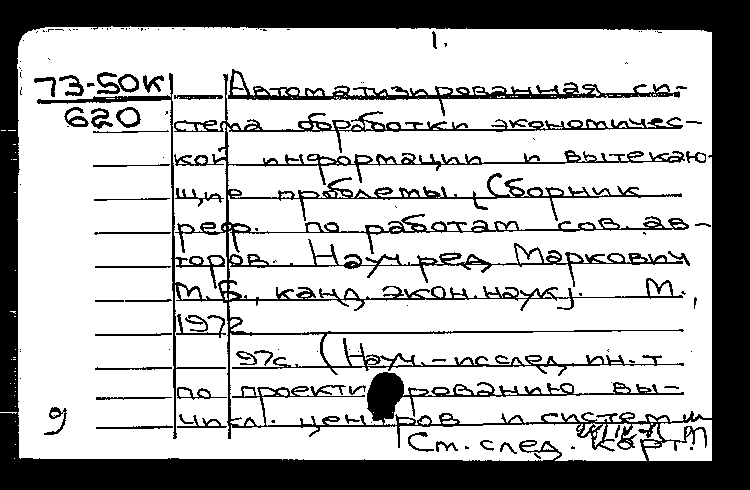 1.
73-50К Автоматизированная си-
620 стема обработки экономичес-
кой информации и вытекаю-
щие проблемы. [Сборник
реф. по работам сов. ав-
торов. Науч. ред. Маркович
М.Б., канд. экон. наук]. М.,
1972.
97с. (Науч.-исслед. ин-т
по проектированию вы-
числ. центров и систем
См. след. карт.